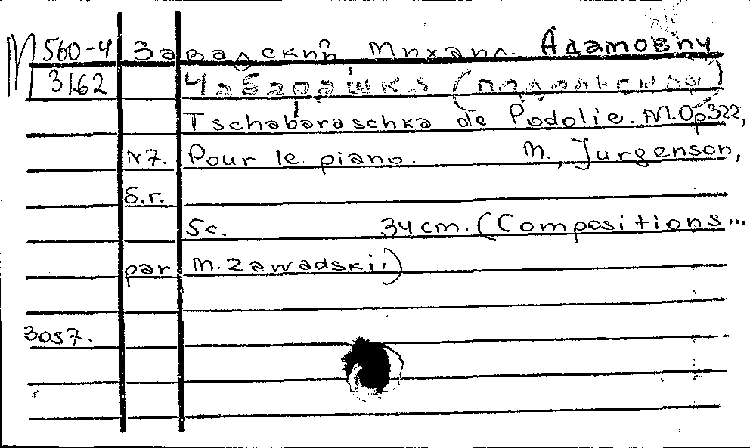 М 560-4 Завадский Михаил Адамович
3162 Чабарашка (подольская)
Tschabaraschka de Podolie. M. Op 322,
N7. Pour le piano. M., Jurgenson,
б.г.
5с. 34 cm. (Compositions...
par M. Zawadski.)
3057.